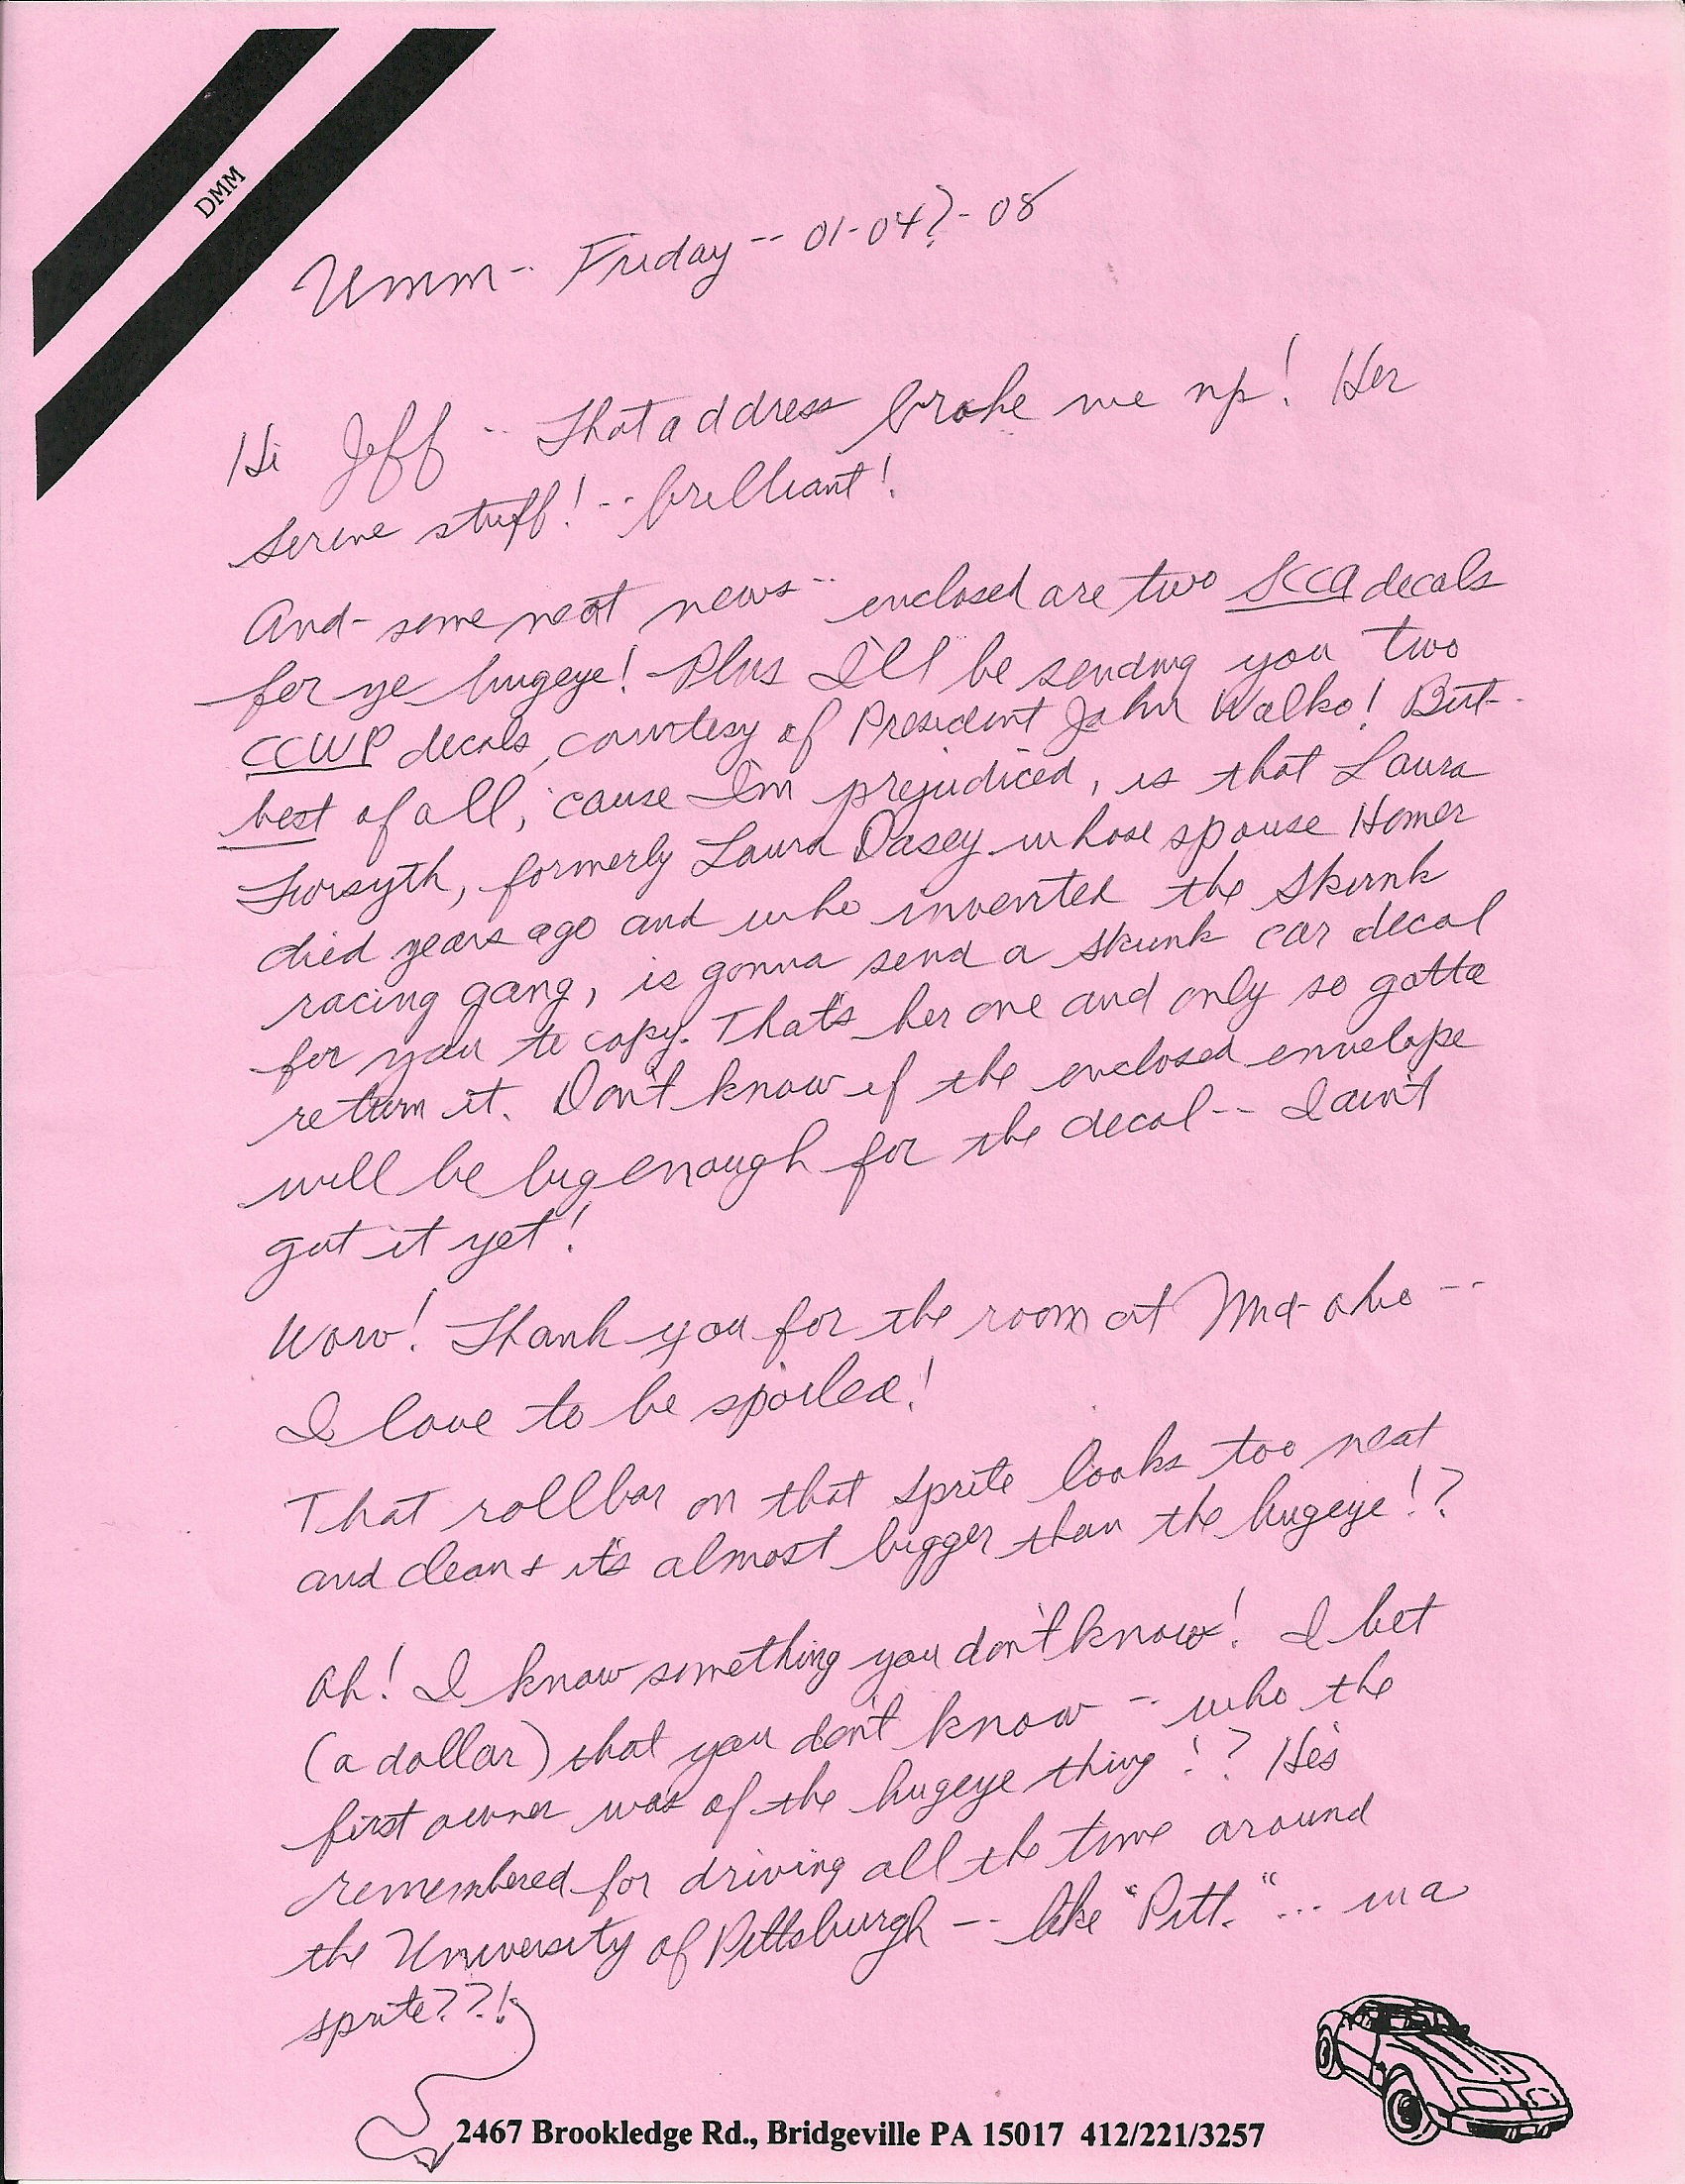 DMM
Umm-- Friday -- 01-04?-08
Hi Jeff -- That address broke me up! Her
serene stuff! -- brilliant!
And - some neat news -- enclosed are two SCCA decals
for ye bugeye! Plus I'll be sending you two
CCWP decals, courtesy of President John Walko! But--
best of all, 'cause I'm prejudiced, is that Laura
Forsyth, formerly Laura Dasey whose spouse Homer
died years ago and who invented the Skunk
racing gang, is gonna send a skunk car decal
for you to copy. That's her one and only so gotta
return it. Don't know if the enclosed envelope
will be big enough for the decal -- I ain't
got it yet!
Wow! Thank you for the room at Mid-Ohio --
I love to be spoiled!
That rollbar on that sprite looks too neat
and clean & it's almost bigger than the bugeye!?
Oh! I know something you don't know! I bet
(a dollar) that you don't know -- who the
first owner was of the bugeye thing!? He's
remembered for driving all the time around
the University of Pittsburgh -- like "Pitt."... in a
sprite??!
2467 Brookledge Rd., Bridgeville PA 15017 412/221/3257